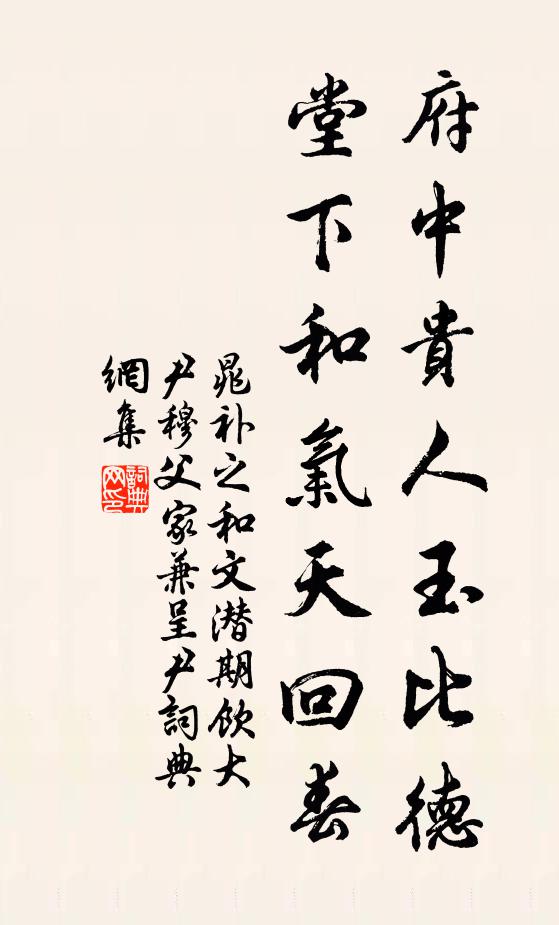 府中貴人玉比德
堂下和氣天回春
晁补之和文潜期飲大
尹穆父家兼呈尹詞典
網集
詞典
网印